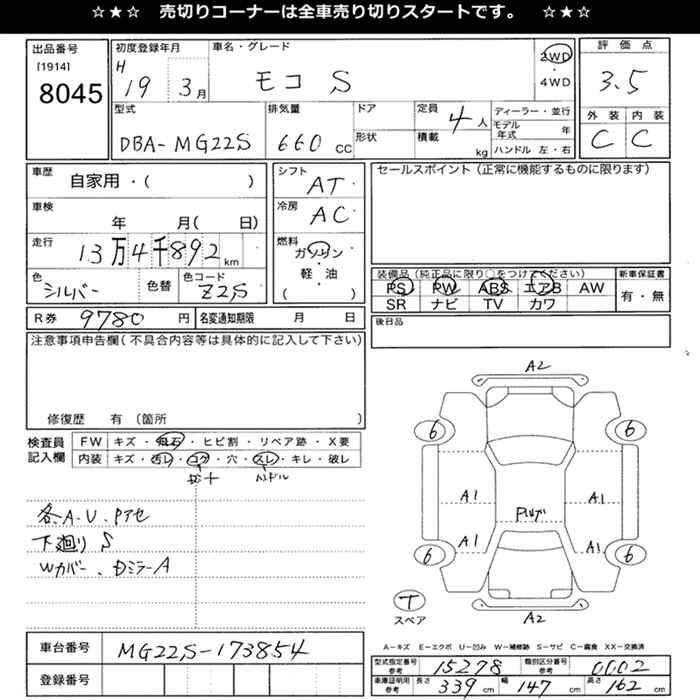 ☆★☆ 売切りコーナーは全車売り切りスタートです。 ☆★☆
出品番号
[1914]
8045
初度登録年月
H
19 3月
車名・グレード
モコ S
2WD
・
4WD
評価点
3.5
外装 内装
C C
型式
DBA-MG22S
排気量
660 CC
ドア
形状
定員
4人
積載
kg
ディーラー・並行
モデル年式 年
ハンドル 左・右
車歴
自家用・( )
車検
年 月( 日)
走行
13万4千892km
色
シルバー
色替
色コード
Z2S
シフト
AT
冷房
AC
燃料
ガソリン
・
軽・油
( )
セールスポイント(正常に機能するものに限ります)
装備品(純正品に限り○をつけてください)
PS PW ABS エアB AW
SR ナビ TV カワ
新車保証書
有・無
R券 9780円
名変通知期限 月 日
後日品
注意事項申告欄(不具合内容等は具体的に記入して下さい)
修復歴 有(箇所 )
検査員
記入欄
FW キズ・飛石・ヒビ割・リペア跡・X要
内装 キズ・汚レ・コゲ・穴・スレ・キレ・破レ
ハンドル
各、A・U、Pアセ
下廻り S
Wカバー、DミラーA
A2
6 6
A1 A1
A1 A1
6 6
T
スペア
A2
車台番号 MG22S-173854
登録番号
A−キズ E−エクボ U−凹み W−補修跡 S−サビ C−腐食 XX−交換済
型式指定番号
参考
15278
類別区分番号
参考
0002
車庫証明用
参考
長さ 339cm 幅 147cm 高さ 162cm